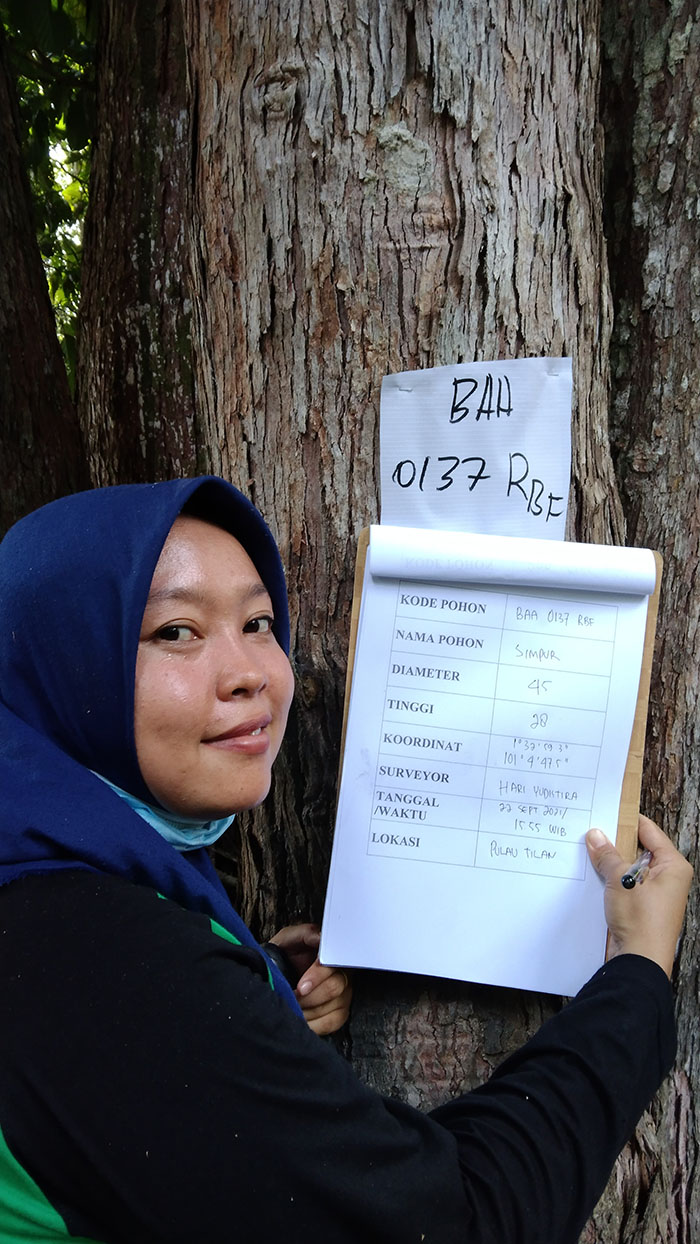 BAA
0137 RBF
KODE POHON BAA 0137 RBF
NAMA POHON SIMPUR
DIAMETER 45
TINGGI 28
KOORDINAT 1° 37' 59.3"
101° 4' 47.5"
SURVEYOR HARI YUDISTIRA
TANGGAL 22 SEPT. 2021/
/WAKTU 15:55 WIB
LOKASI PULAU TILAN